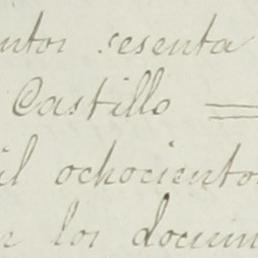 ntos sesenta
Castillo =
il ochociento
n los docum